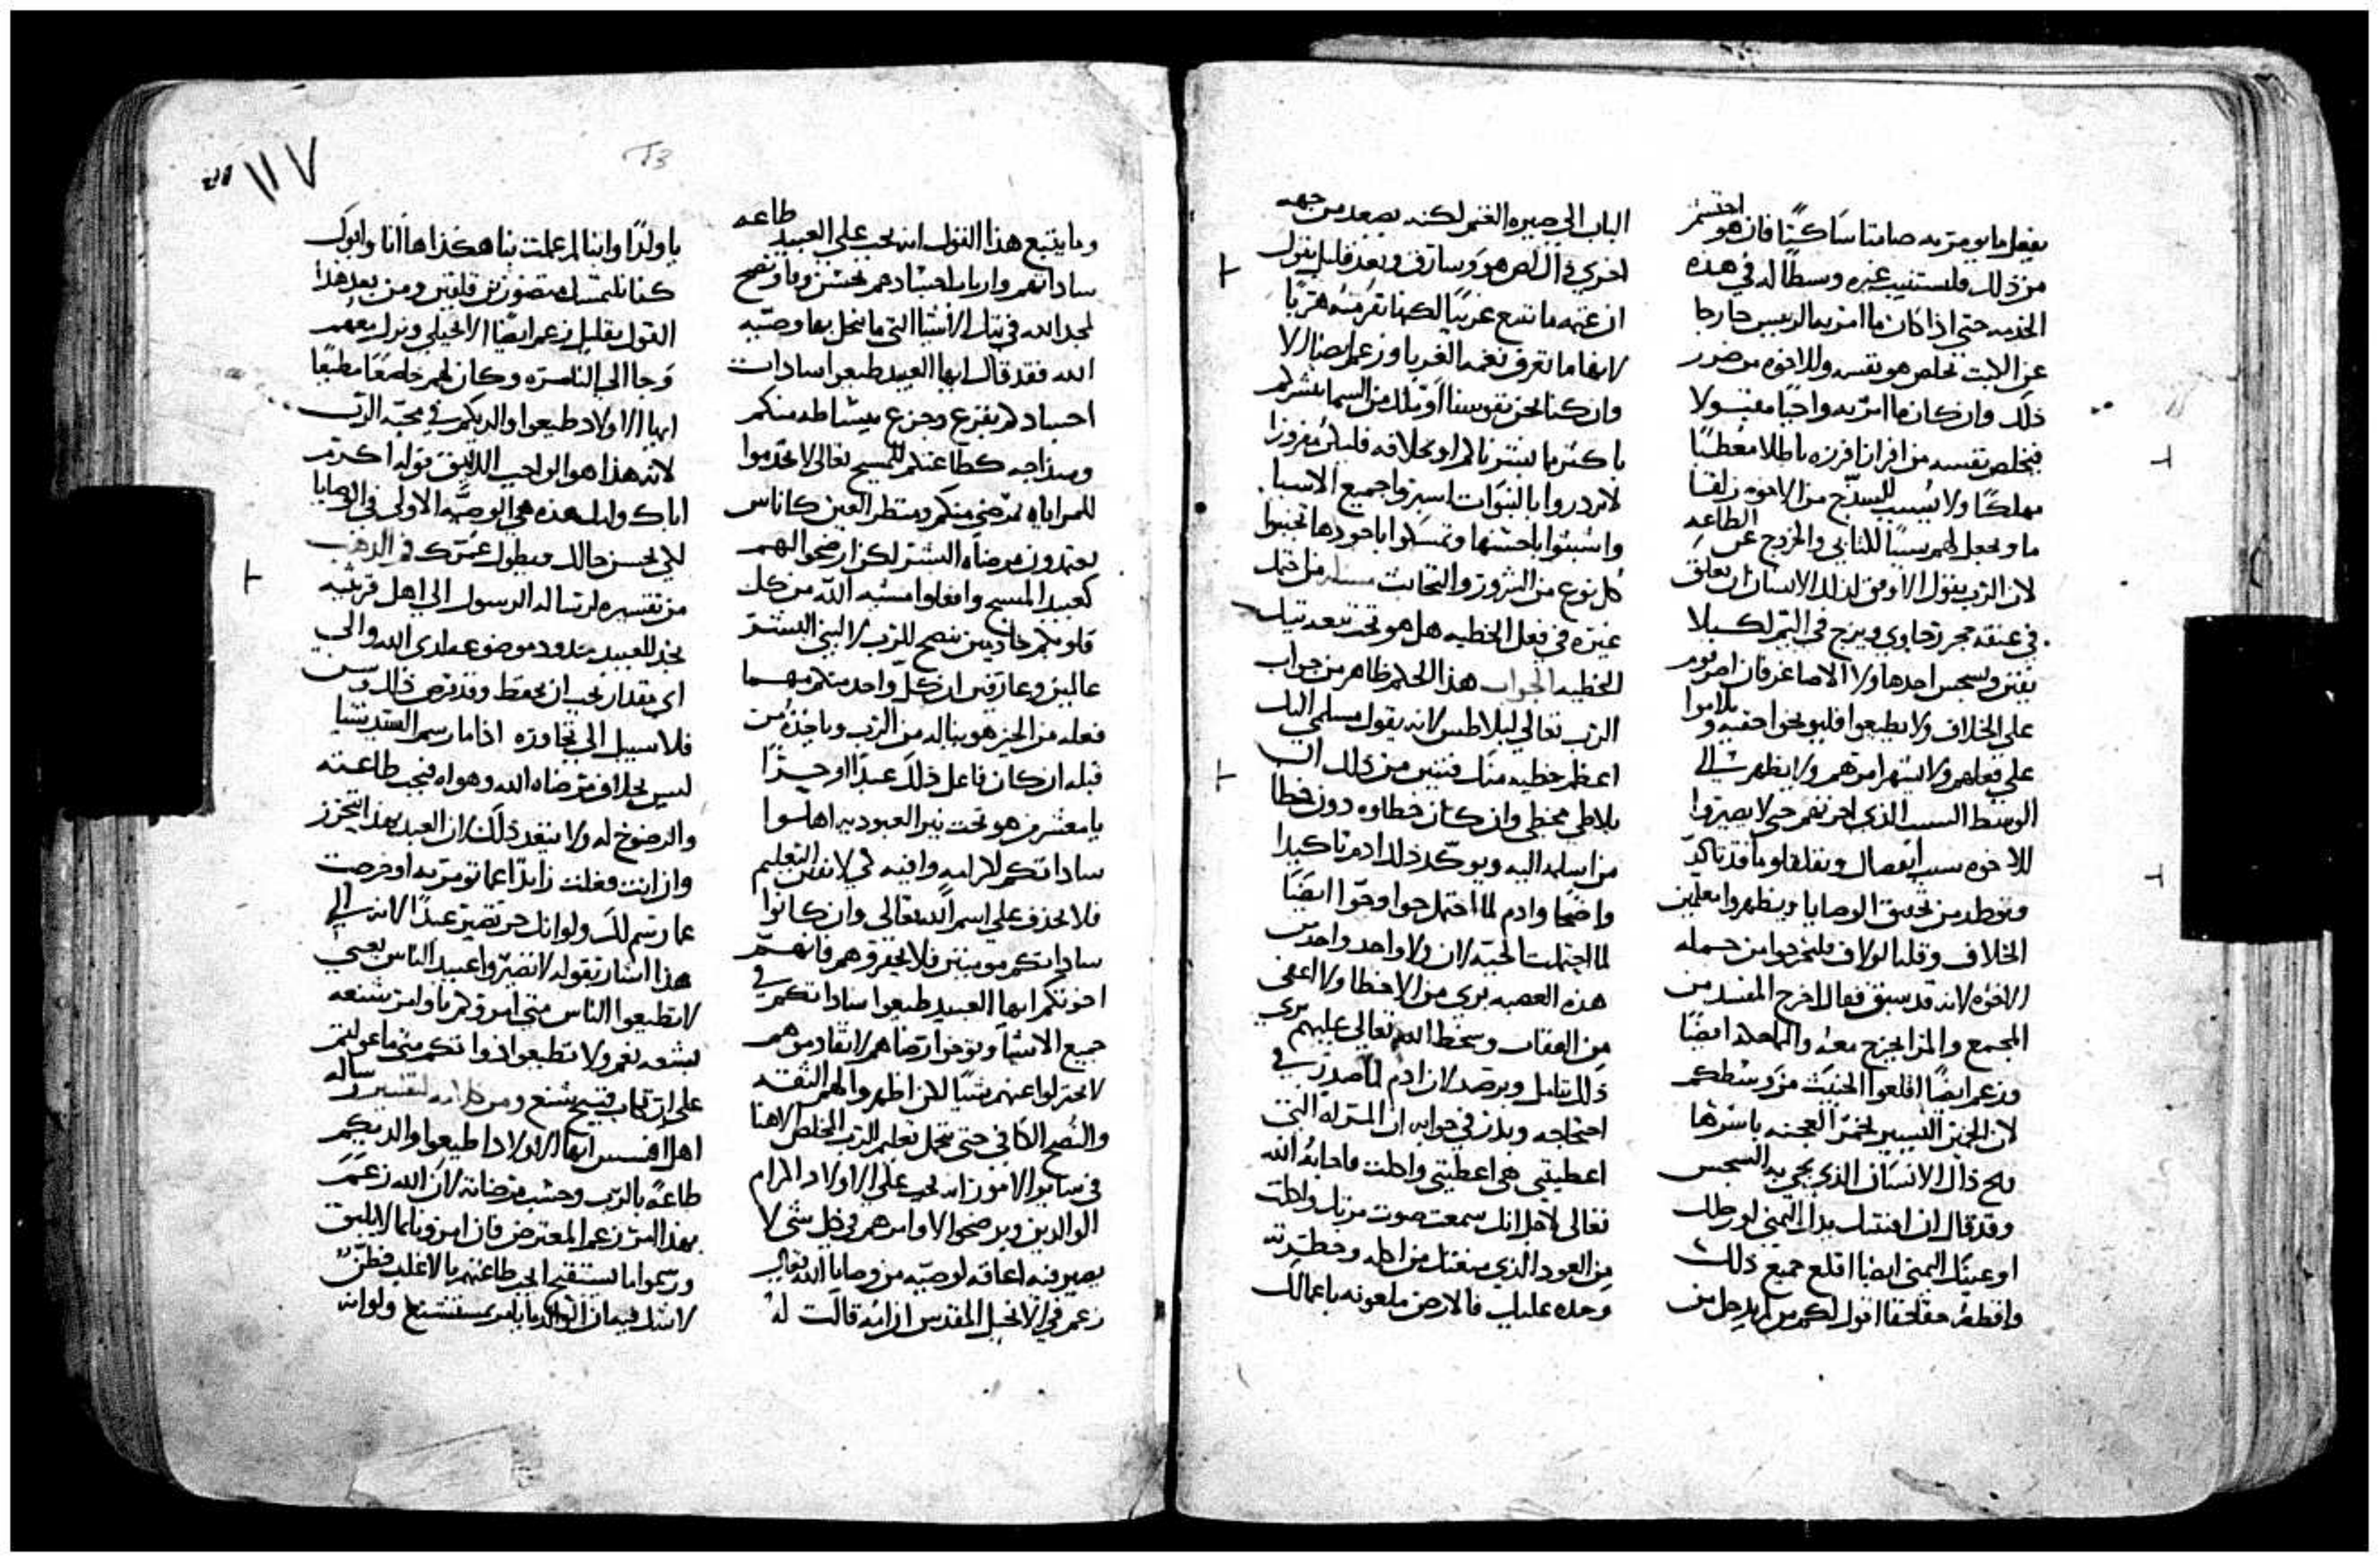 يفعل ما يومر به صامتا ساكتًا فان هو احتشم
من ذلك فلستنيب غيره وسطًا له في هذه
الخدمه حتي اذا كان ما امر به الرييس خارجا
عن الابت يخلص هو نفسه وللاخوه من ضرر
ذلك وان كان ما امر به واجبًا مقبولا
فيخلص نفسه من افرانا فرزه باطلا معطبًا
مهلكًا ولا يسبب للسذج من الاخوه زلقا
ما ويجعل لهم سببًا للتابي والخروج عن الطاعه
لان الرب يقول الاوفق لذلك الانسان ان يعلق
في عنقه حجر رحاوي ويزج في اليم لكيلا
يفتن ويسجس احد هاولا الاصاغر فان اصر قوم
على الخلاف ولا يطيعوا فليوبخوا خفيه ويلاموا
علي فعلهم ولا يشهر امرهم ولا يظهر شي الي
الوسط السبب الذي احزنهم حتي لا يصيروا
للاخوه سبب انفصال ويقلقلو ما قد تاكد
وتوطد من تحقيق الوصايا ويظهروا معلمين
الخلاف وقلة الولاف فليخرجوا من جمله
الاخوه لانه قد سبق فقال اخرج المفسد من
المجمع والمرا يخرج معه والماحله ايضًا
وزعم ايضًا اقلعوا الخبيث من وسطكم
لان الخمير اليسير يخمر العجنه باسرها
ويح ذاك الانسان الذي يجي به السجس
وقد قال ان افتنتك يدك اليمني او رجلك
او عينك اليمني ايضا اقلع جميع ذلك
واقطعه حقا حقا اقول لكم من لم يدخل من
الباب الي صيره الغنم لكنه يصعد من جهه
اخري فذاك لص هو وسارق وبعد قليل يقول
ان غنمه ما تتبع غريبًا لكنها تفر منه هربًا
لانها ما تعرف نغمه الغربا وزعم ايضا الا
وان كنا نحن نفوسنا او ملك من السما بشركم
باكثر ما بشرناكم او بخلافه فليكن مفروزا
لا تزدروا بالنبوات اسبروا جميع الاشيا
واشبثوا باحسنها وتمسكوا باجودها تجنبوا
كل نوع من الشرور والتخابث مسله من حمل
غيره في فعل الخطيه هل هو تحت تبعه تيك
الخطيه الجواب هذا الحكم ظاهر من جواب
الرب تعالي لبلاطس لانه يقول مسلمي اليك
اعظم خطيه منك فتبين من ذلك ان
بلاطي مخطي وان كان خطاوه دون خطا
من اسلمه اليه ويوكد ذلك ادم تاكيدا
واضحا وادم لما احتمل حوا وحوا ايضًا
لما احتملت الحيه لان ولا واحد واحد من
هذه العصبه بري من الاخطا ولا اعفي
من العقاب وسخط الله تعالي عليهم يري
ذلك تامل ويرصد لان ادم لما صدر في
احتجاجه وبدر في جوابه ان المراه التي
اعطيتني هي اعطيتني واكلت فاجابه الله
تعالى لاجل انك سمعت صوت مرتك واكلت
من العود الذي منعتك من اكله وحظرته
وحده عليك فالارض ملعونه باعمالك
١١٧
وما يتبع هذا القول انه يجب علي العبيد طاعه
ساداتهم وارباب اجسادهم بحسن وفا ونصح
لمجد الله في تلك الاشيا التي ما ينحل بها وصيه
الله فقد قال ايها العبيد طيعوا سادات
اجسادكم بفزع وجزع ببساطه منكم
وسذاجه كطاعتكم للمسيح تعالى لا تخدموا
للمراياه ترضي منكم ومنظر العين كاناس
يعتمدون مرضاه البشر لكن ارضخوا لهم
كعبيد المسيح وافعلوا مشيه الله من كل
قلوبكم خادمين بنصح للرب لا لبني البشر
عالمين وعارفين ان كل واحد منكم مهما
فعله من الخير هو يناله من الرب وياخذه من
قبله ان كان فاعل ذلك عبدًا او حرًا
يا معشر من هو تحت نير العبوديه اهلوا
ساداتكم لكرامه وافيه كي لا نفتن التعليم
فلا يجدف علي اسم الله تعالى وان كانوا
ساداتكم مومنين فلا تحقروهم فانهم
اخوتكم ايها العبيد طيعوا ساداتكم في
جميع الاشيا وتوخوا رضاهم لا تقاوموهم
لا تختزلوا عنهم شيًا لكن اظهروا لهم الثقه
والنصح الكافي حتي تجمل تعليم الرب المخلص الاهنا
في ساير الامور انه يجب علي الاولاد اكرام
الوالدين ويرضخوا لاوامرهم في كل شي لا
يصير فيه اعاقه لوصيه من وصايا الله تعالي
زعم في الانجيل المقدس ان امه قالت له
يا ولدًا واننا لم عملت بنا هكذا ها انا وابوك
كنا نلتمسك متضورين قلقين ومن بعد هذا
القول بقليل زعم ايضًا الانجيلي ونزل معهم
وجا الي الناصره وكان لهم خاضعًا مطيعًا
ايها الاولاد طيعوا والديكم في محبه الرب
لان هذا هو الواجب اللايق قوله اكرم
اباك وامك هذه هي الوصيه الاولى في الوصايا
لكي يحسن حالك ويطول عمرك في الارض
من تفسيره لرساله الرسول الي اهل قرنثيه
يخد للعبيد حدود موضوعه لدي الله والي
اي مقدار يجب ان تحفظ وقد فرض ذلك وسن
فلا سبيل الي تجاوزه اذا ما رسم السيد شيا
ليس بخلاف مرضاه الله وهواه فيجب طاعته
والرضوخ له ولا يتعد ذلك لان العبد بهذا يتحرز
وان انت فعلت زايدا عما تومر به او خرجت
عما رسم لك ولو انك حر تصير عبدًا لانه الي
هذا اشار بقوله لا تصيروا عبيد الناس يعني
لا تطيعوا الناس متى امروكم باوامر شنعه
بشعه نعم ولا تطيعوا ذواتكم متي ما عولتم
علي ارتكاب قبيح شنع ومن كلامه لتفسير رساله
اهل افسس ايها الاولاد اطيعوا والديكم
طاعةً بالرب وحسب مرضاته لان الله زعم
بهذا امر زعم المعترض فان امرونا بما لا يليق
ورسموا ما يستقبح ايجب طاعتهم بالاغلب فظن
لا شك فيه ان الوالد ما يامر بمستشنع ولو انه